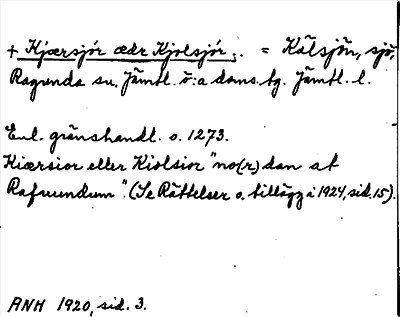 + Kjærsjór ædr Kjolsjór. = Kälsjön, sjö,
Ragunda sn. Jämtl. ö:a doms. tg. Jämtl. l.
Enl. gränshandl. o. 1273.
Kiærsior eller Kiolsior "no(r)dan at
Rafnundum". (Se Rättelser o. tillägg i 1924, sid. 15).
ANH 1920, sid. 3.